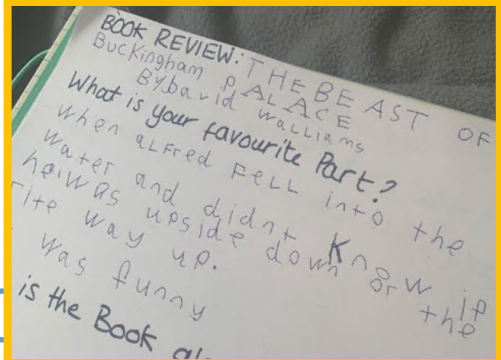 BOOK REVIEW: THE BEAST OF
Buckingham PALACE
BY David Walliams
What is your favourite Part?
when aLFred FeLL into the
water and didnt know if
he was upside down or the
rite way up.
was funny
is the Book